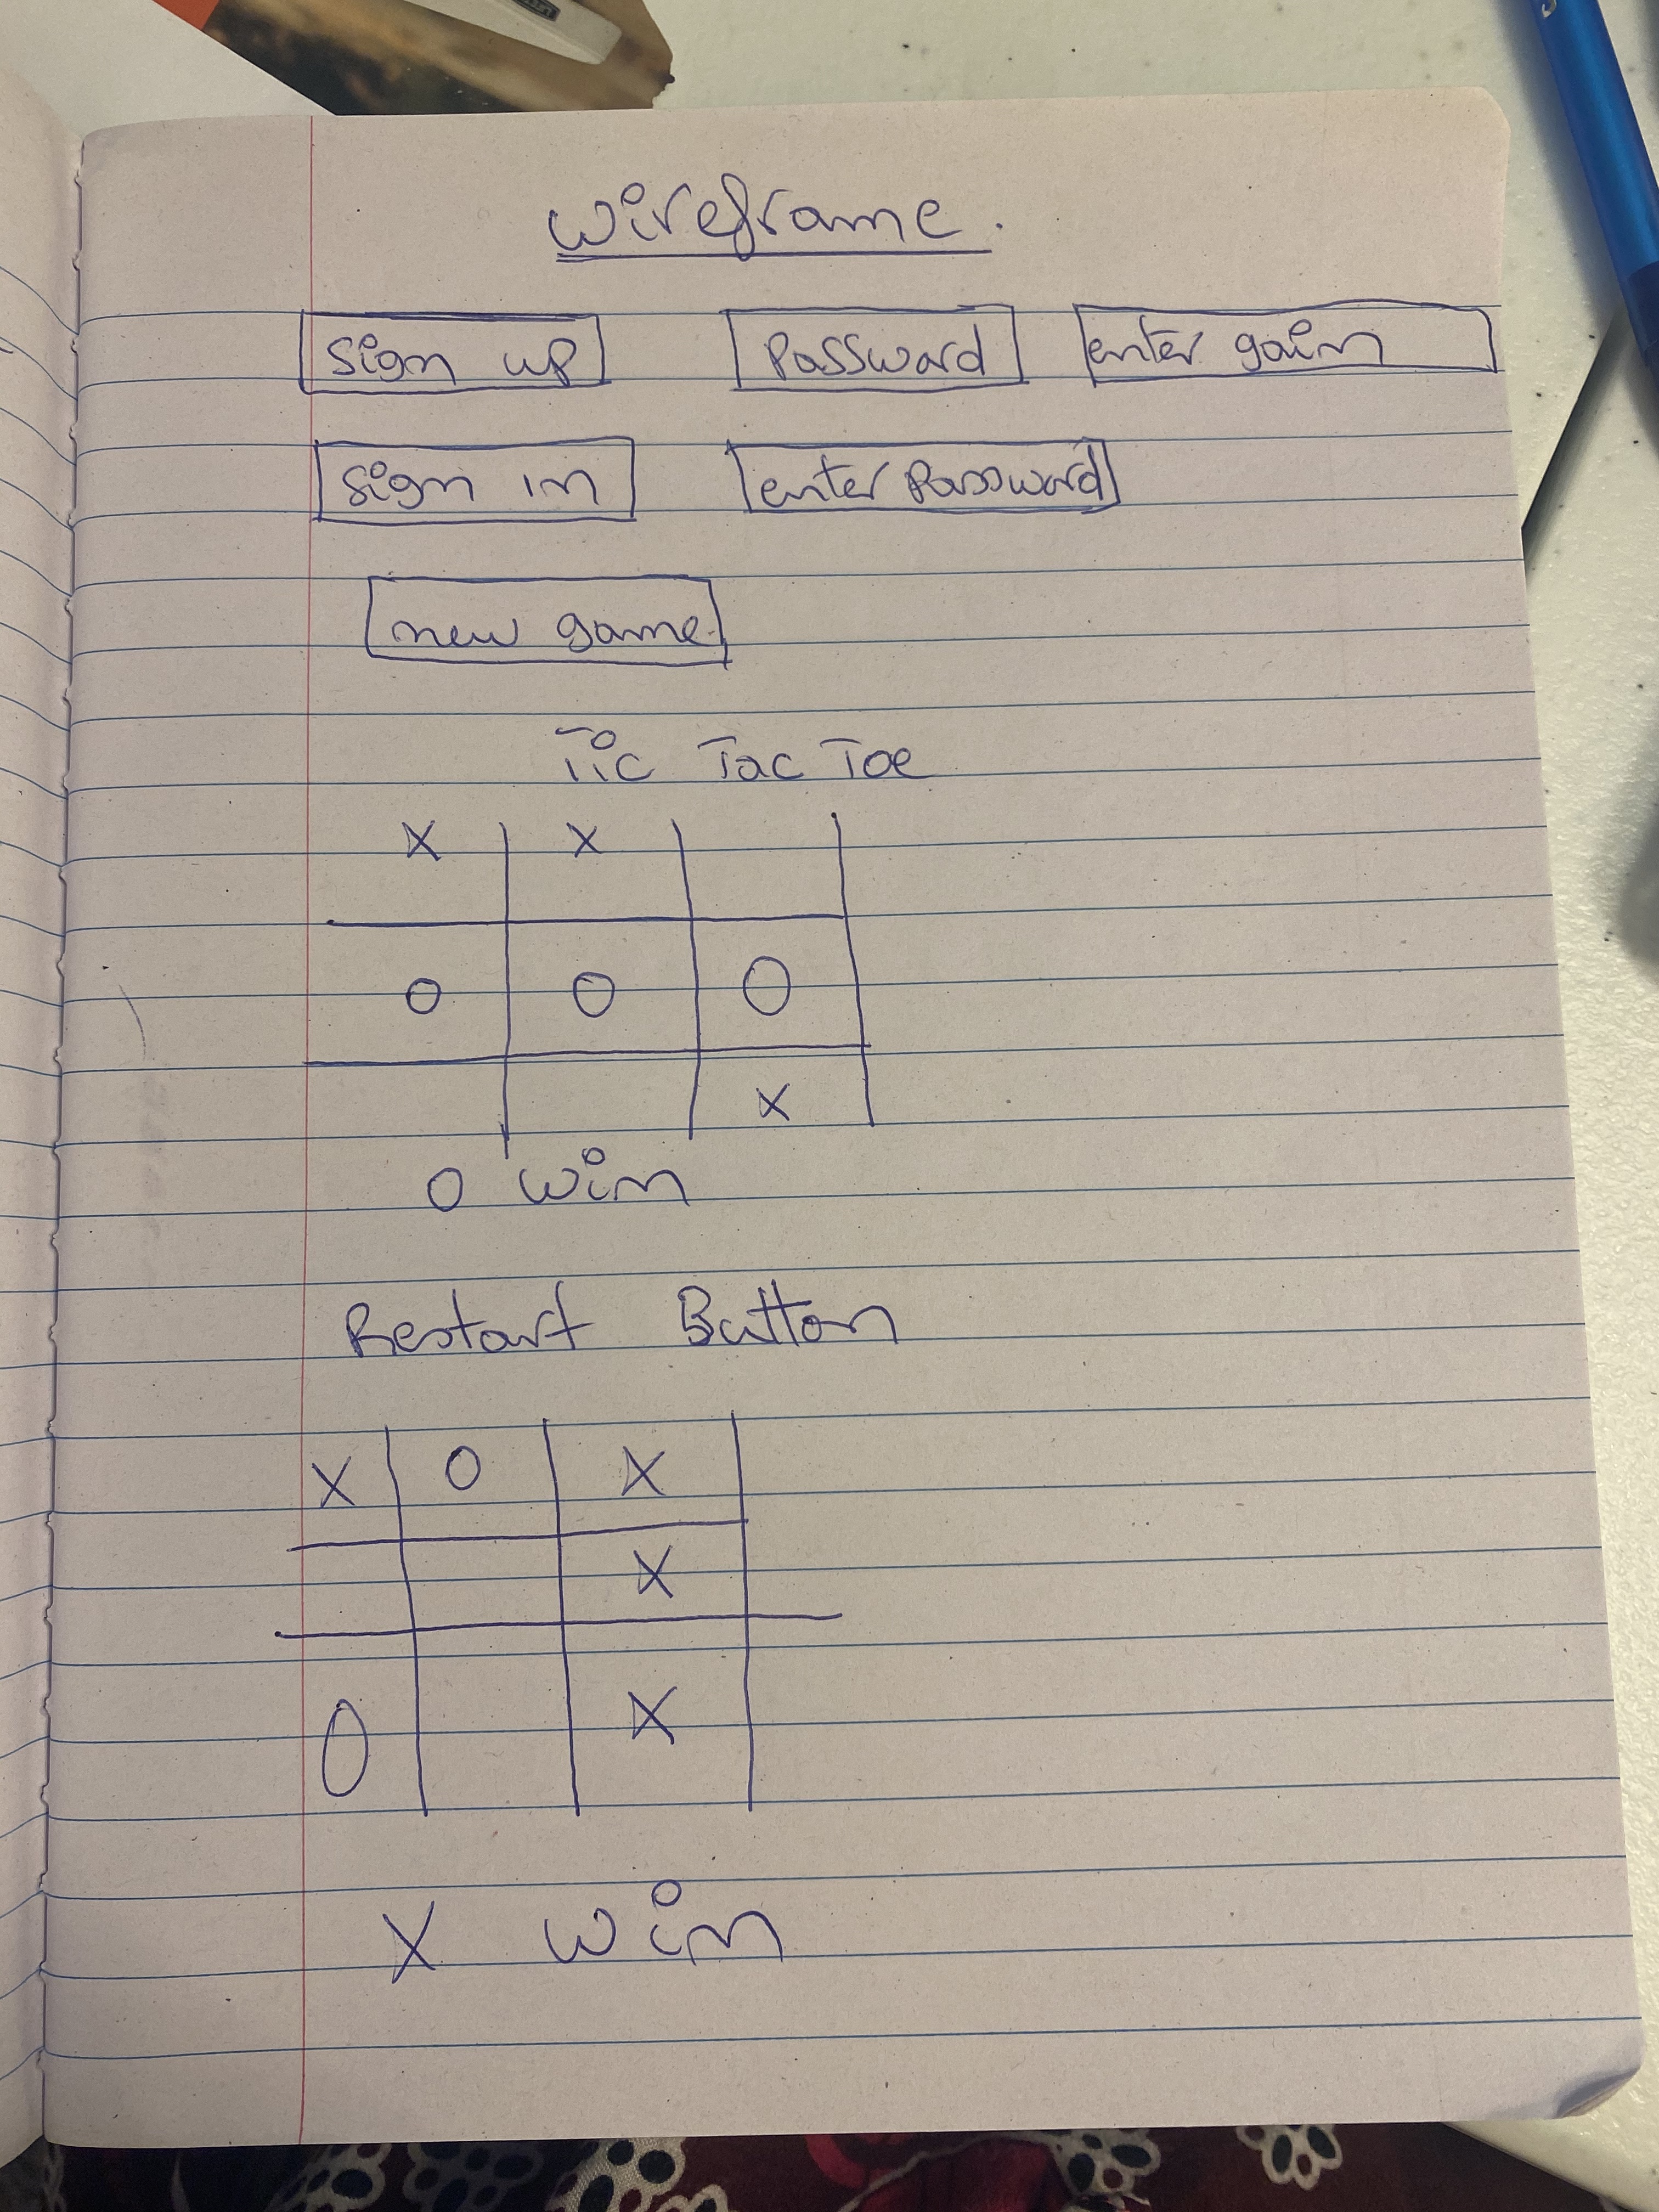 wireframe.
sign up Password enter gain
sign in enter Password
new game
Tic Tac Toe
X X
O O O
X
O win
Restart Button
X O X
X
O X
X win